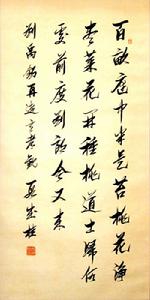 百畝庭中半是苔桃花淨
尽菜花开種桃道士歸何
處前度劉郎今又来
刘禹錫再遊玄都觀